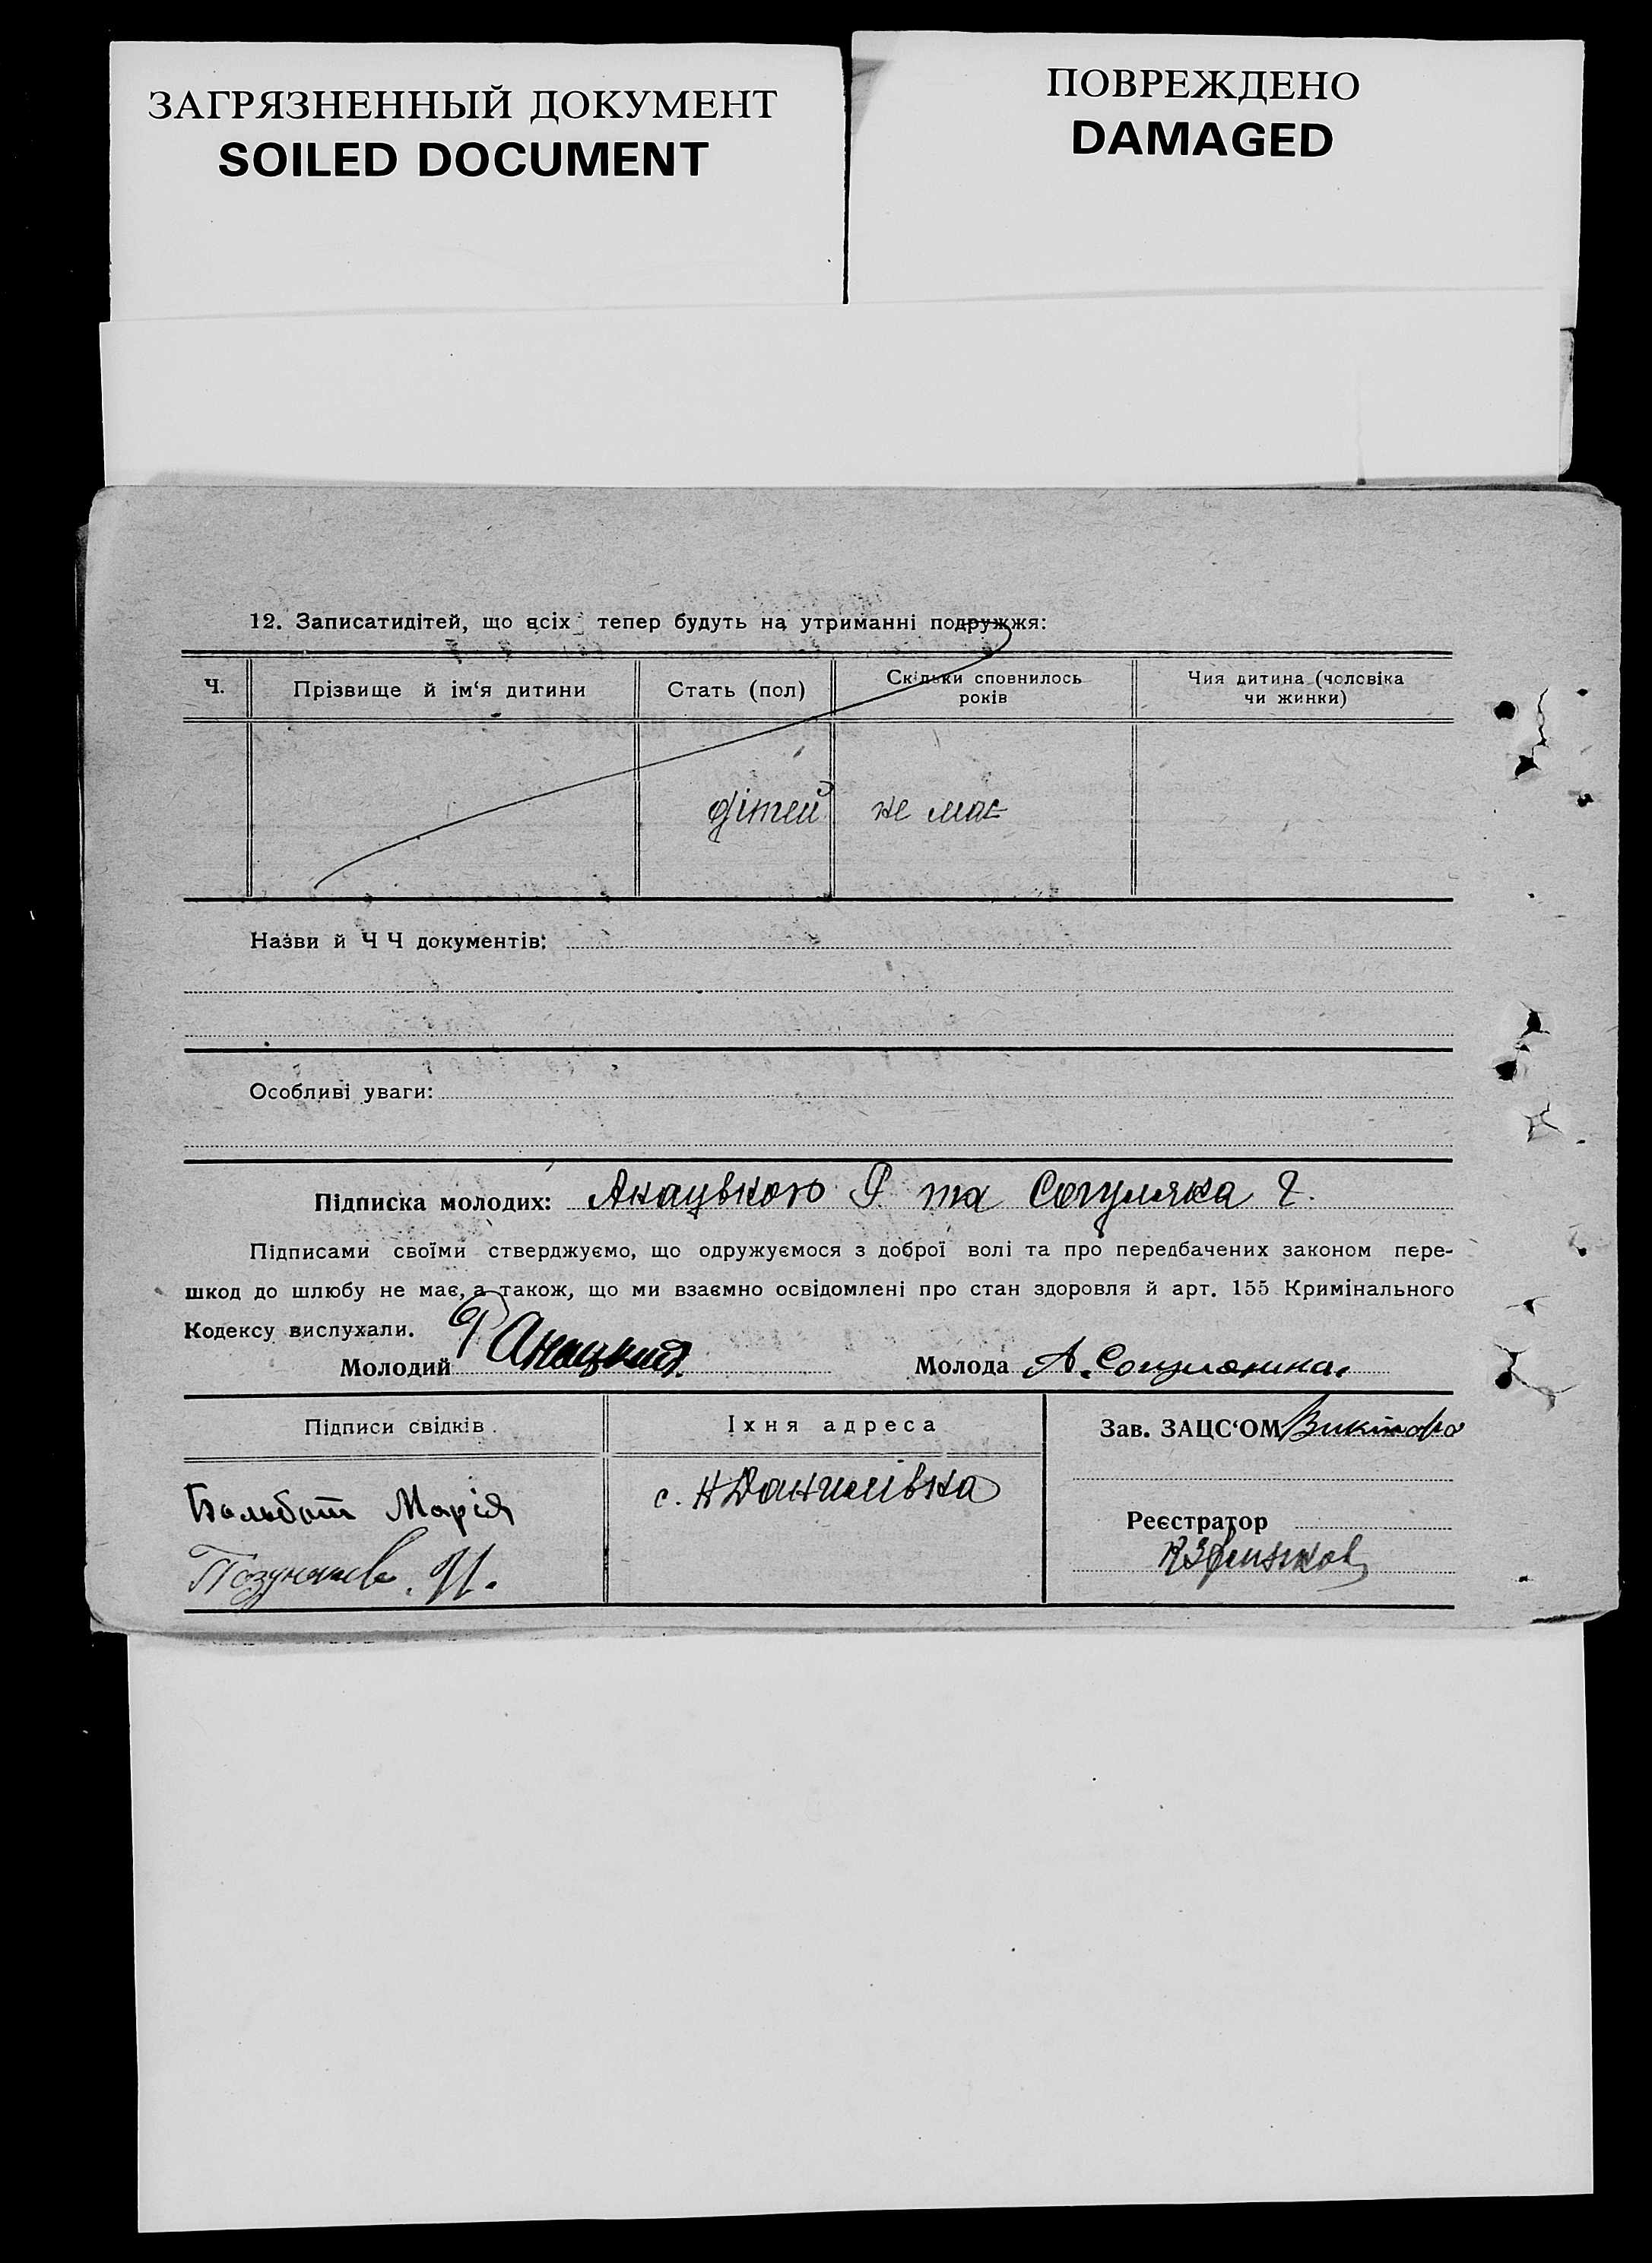 ЗАГРЯЗНЕННЫЙ ДОКУМЕНТ
SOILED DOCUMENT
ПОВРЕЖДЕНО
DAMAGED
12. Записатидітей, що всіх тепер будуть на утриманні подружжя:
Ч.
Прізвище й ім‘я дитини
Стать (пол)
Скільки сповнилось
років
Чия дитина (чоловіка
чи жинки)
дітей не має
Назви й Ч Ч документів:
Особливі уваги:
Підписка молодих: та
Підписами своїми стверджуємо, що одружуємося з доброї волі та про передбачених законом пере-
шкод до шлюбу не має, а також, що ми взаємно освідомлені про стан здоровля й арт. 155 Кримінального
Кодексу вислухали.
Молодий
Молода А.
Підписи свідків.
Їхня адреса
Зав. ЗАЦС‘ОМ
Бальбат Марія
с. Н Данилівка
Реєстратор